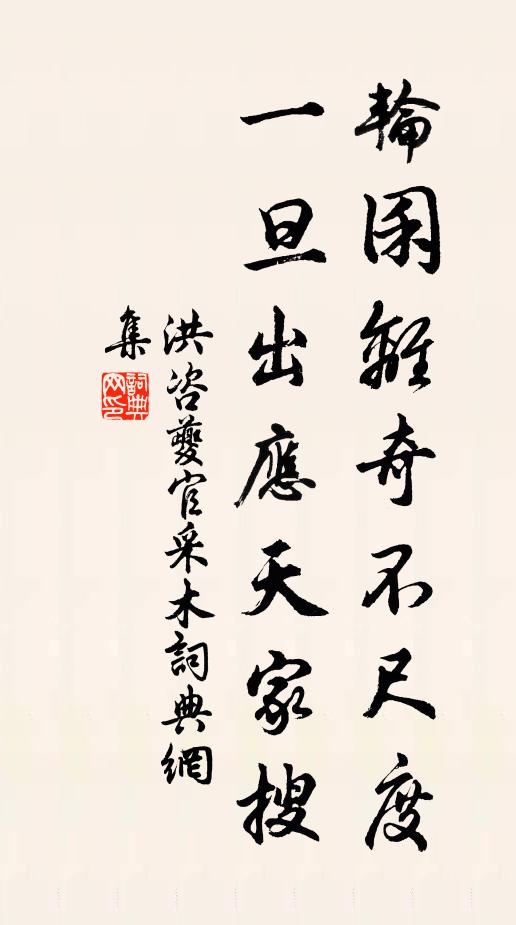 輪囷離奇不尺度
一旦出應天家搜
洪咨夔官采木詞典網
集
詞典網印